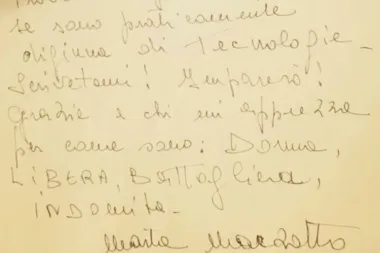 se sono praticamente
digiuna di Tecnologie -
Scrivetemi! Imparerò!
Grazie a chi mi apprezza
per come sono: Donna,
LIBERA, Battagliera,
INDOMITA -
Marta Marzotto